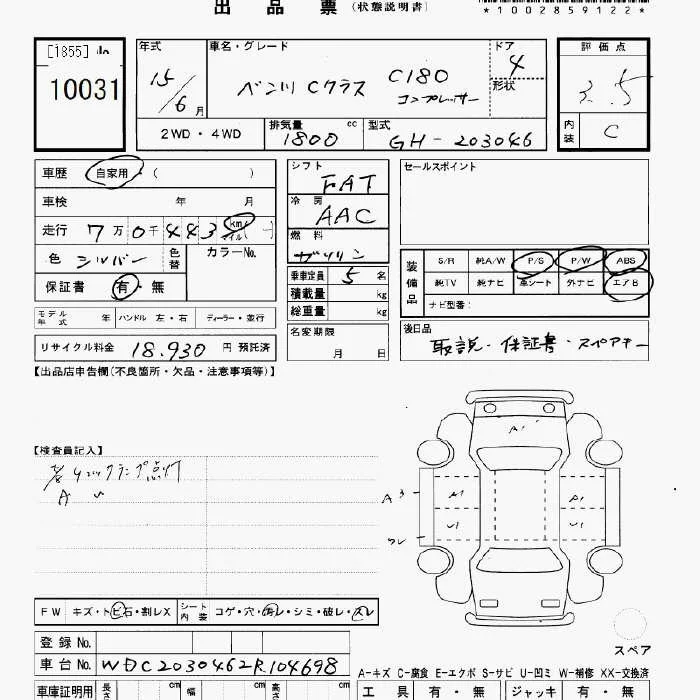 出品票 (状態説明書)
*1002859122*
[1855]
10031
年式 15/6月
車名・グレード ベンツ Cクラス C180 コンプレッサー
ドア 4
形状
評価点 3.5
内装 C
2WD・4WD
排気量 1800 cc
型式 GH-203046
車歴 自家用 ( )
車検 年 月
走行 7万0千443 km マイル ( )
色 シルバー 色替 カラーNo.
保証書 有・無
モデル年式 年 ハンドル 左・右 ディーラー・並行
リサイクル料金 18.930 円 預託済
シフト FAT
冷房 AAC
燃料 ガソリン
乗車定員 5 名
積載量 kg
総重量 kg
名変期限
月 日
セールスポイント
装備品
S/R 純A/W P/S P/W ABS
純TV 純ナビ 革シート 外ナビ エアB
ナビ型番:
後日品
取説・保証書・スペアキー
【出品店申告欄(不良箇所・欠品・注意事項等)】
【検査員記入】
ランプ点灯
A U
A1
A3
A1
A1
U1
U1
FW キズ・トビ石・割レX
シート内装 コゲ・穴・汚レ・シミ・破レ・スレ
登録No.
車台No. WDC2030462R104698
車庫証明用 長さ cm 幅 cm 高さ cm
スペア
A-キズ C-腐食 E-エクボ S-サビ U-凹ミ W-補修 XX-交換済
工具 有・無 ジャッキ 有・無